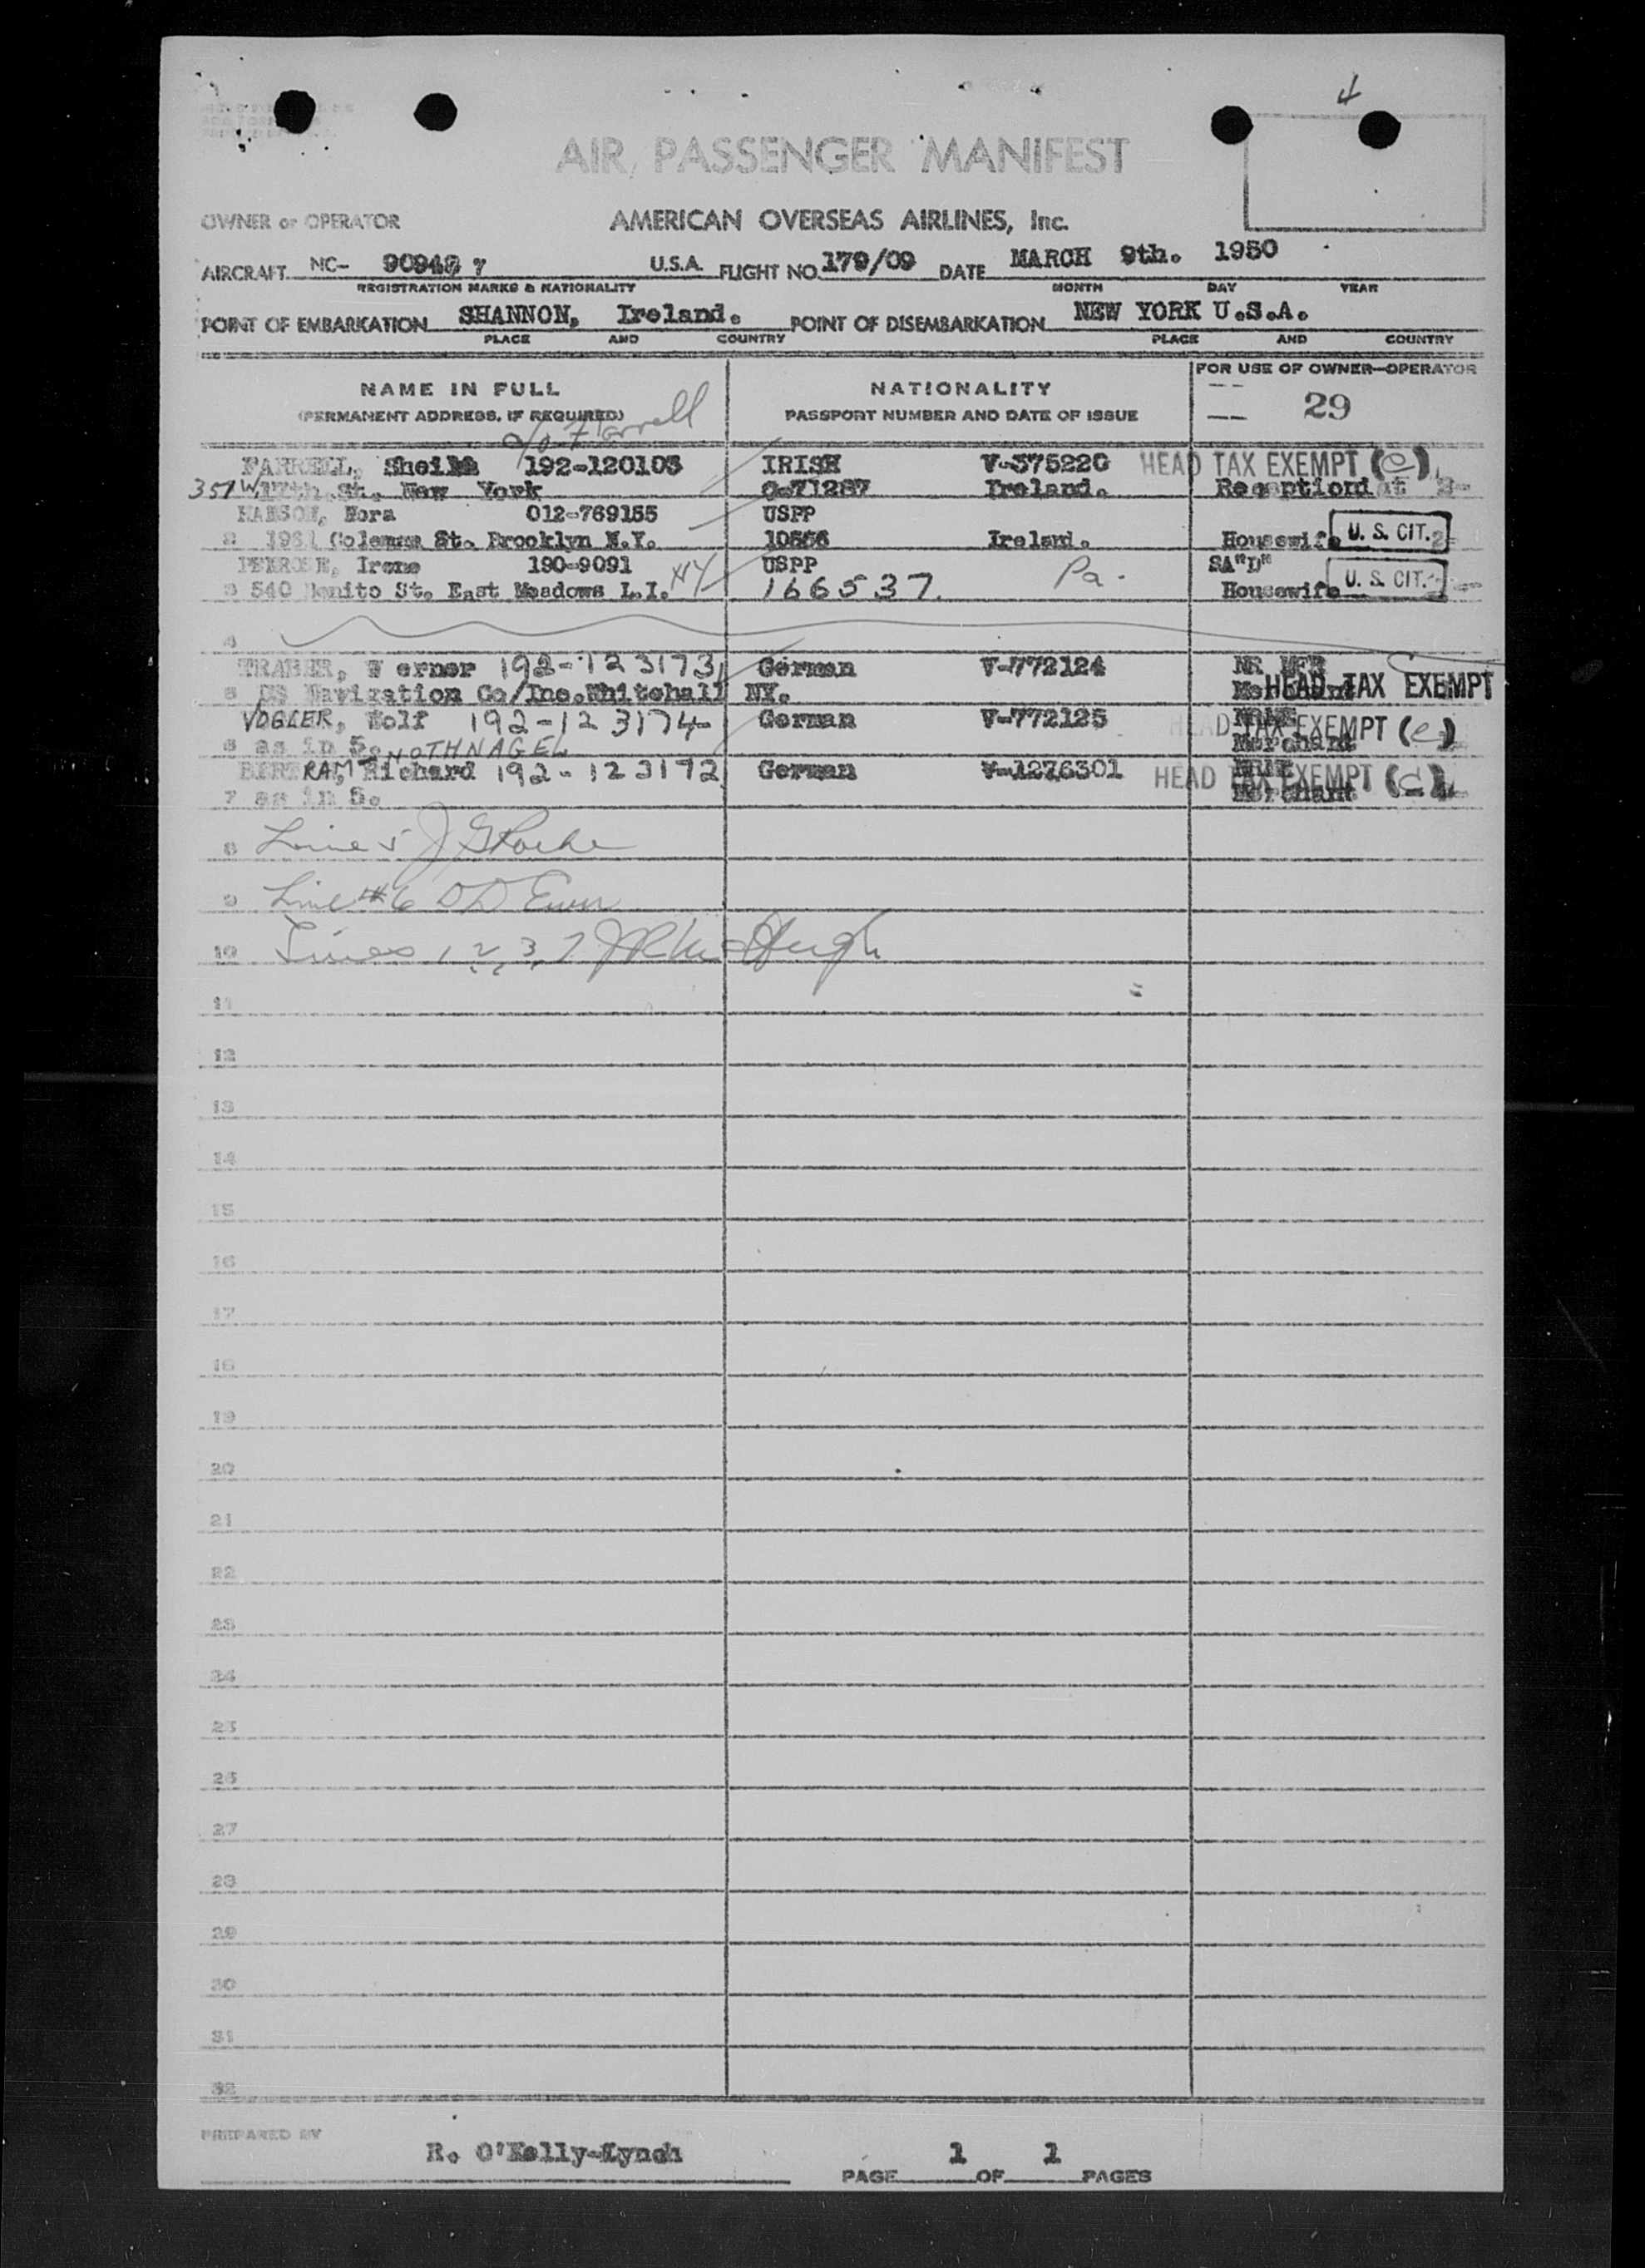 4
AIR PASSENGER MANIFEST
OWNER or OPERATOR AMERICAN OVERSEAS AIRLINES, Inc.
AIRCRAFT NC- 90948 7 U.S.A. FLIGHT NO. 179/09 DATE MARCH 9th. 1950
REGISTRATION MARKS & NATIONALITY MONTH DAY YEAR
POINT OF EMBARKATION SHANNON, Ireland. POINT OF DISEMBARKATION NEW YORK U.S.A.
PLACE AND COUNTRY PLACE AND COUNTRY
NAME IN FULL NATIONALITY FOR USE OF OWNER—OPERATOR
(PERMANENT ADDRESS, IF REQUIRED) PASSPORT NUMBER AND DATE OF ISSUE 29
c/o Farrell
FARRELL, Sheila 192-120103 IRISH V-575220 HEAD TAX EXEMPT (e)
351 W St. New York C-71287 Ireland. Receptionist
Nora 012-769155 USPP
2 Coleman St. Brooklyn N.Y. 10556 Ireland. Housewife U. S. CIT.
Irene 190-9091 USPP SA"D"
3 540 St. East Meadows L.I. NY 166537. Pa. Housewife U. S. CIT.
4
TRABER, Werner 192-123173 German V-772124
5 US Navigation Co/Inc. Whitehall NY. Merchant HEAD TAX EXEMPT
VOGLER, Wolf 192-123174 German V-772125 HEAD TAX EXEMPT (e)
6 as in 5. Merchant
NOTHNAGEL
BERTRAM, Richard 192-123172 German V-1276301 HEAD TAX EXEMPT
7 as in 5. Merchant
8 Line 5
9 Line #6
10 Lines 1, 2, 3, 7
11
12
13
14
15
16
17
18
19
20
21
22
23
24
25
26
27
28
29
30
31
32
PREPARED BY
R. O'Kelly-Lynch
PAGE 1 OF 1 PAGES